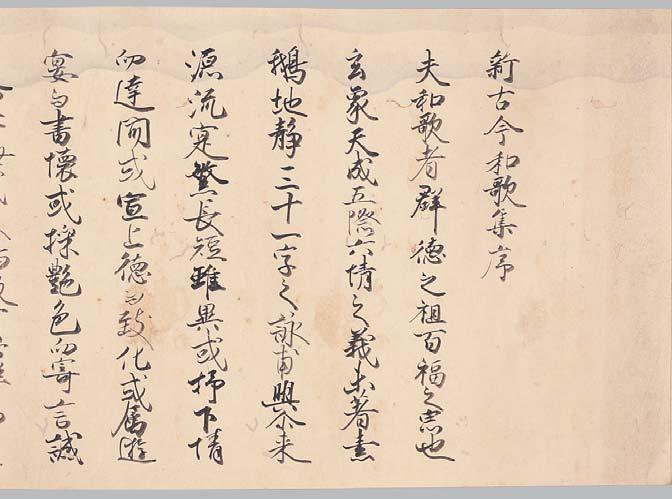 新古今和歌集序
夫和歌者群徳之祖百福之宗也
玄象天成五際六情之義未著素
鵝地静三十一字之詠甫興尓来
源流寔繁長短雖異或抒下情
而達聞或宣上徳而致化或属遊
宴而書懐或採艶色而寄言誠